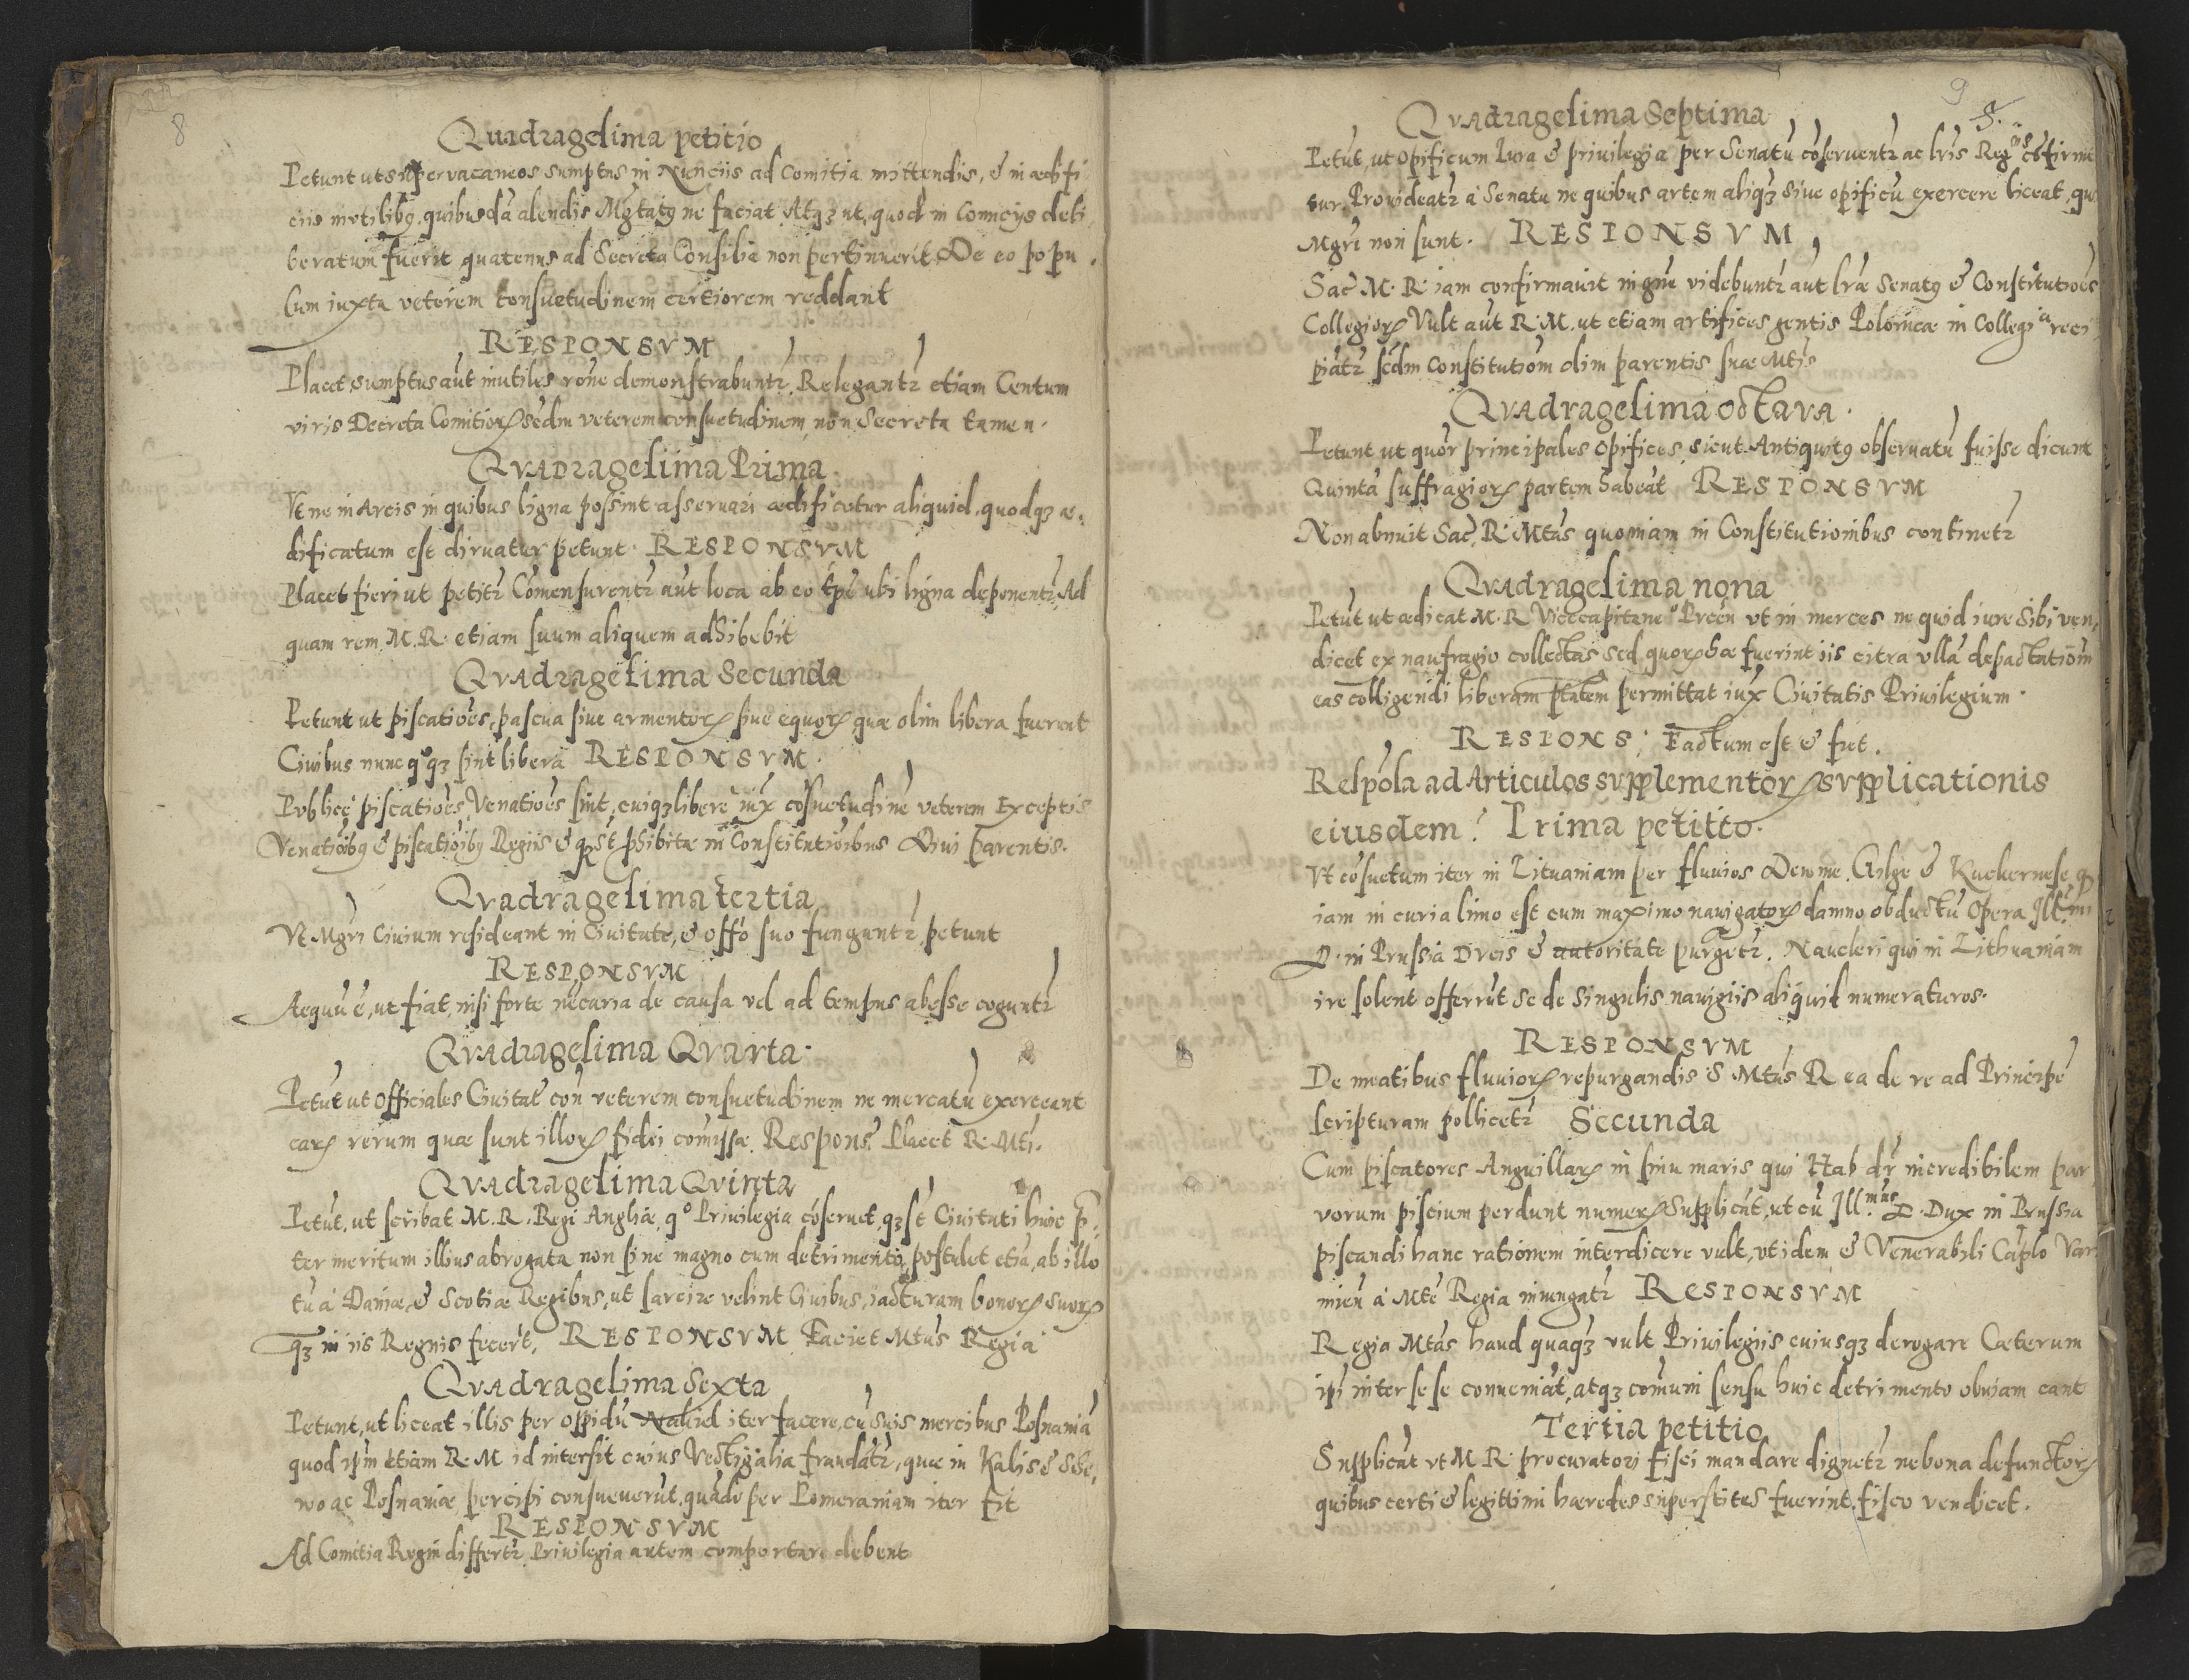 8
Quadragesima petitio
Petunt ut supervacaneos sumptus in Nunciis ad Comitia mittendis, & in ædifi
ciis inutilibꝫ, quibusdā alendis Mgtatꝫ ne faciat Atqꝫ ut, quod in Comicijs deli
beratum fuerit quatenus ad Secreta Consilia non pertinuerit De eo popu
lum iuxta veterem consuetudinem certiorem reddant
RESPONSVM
Placet sumptus aūt inutiles rōne demonstrabuntꝛ, Relegantꝛ etiam Centum
viris Decreta Comitioꝝ sēdm veterem consuetudinem, non Secreta tamen.
QVADRagesima Prima
Vt ne in Areis in quibus ligna possint asservari ædificetur aliquid, quodqꝫ æ.
dificatum est diruatur petunt. RESPONSVM
Placet fieri ut petitꝛ Cōmensurentꝛ aūt loca ab eo tp̄e ubi ligna deponentꝛ Ad
quam rem M. R. etiam suum aliquem adhibebit
QVAdragesima Secunda
Petunt ut piscatiōes, pascua siue armentoꝝ siue equoꝝ quæ olim libera fuerunt
Ciuibus nunc qºqꝫ sint libera RESPONSVM.
Publice piscatiōes, Venatiōes sint, cuiqꝫ libere iux cōsuetudinē veterem Exceptis
Venatiōibꝫ & piscatiōibꝫ Regiis & qꝫ st phibitæ in Constitutiōibus Diui parentis.
Qvadragesima tertia
Vt Mgri Ciuium resideant in Ciuitate, & offō suo funguntꝛ, petunt
RESPONSVM
Aequū ē, ut fiat, nisi forte nēcaria de causa vel ad tempus abesse coguntꝛ
QVAdragesima Qvarta.
Petūt ut Officiales Ciuitat̄ con̄ veterem consuetudinem ne mercatū exerceant
earꝝ rerum quæ sunt illoꝝ fidei cōmissæ. Respons̄ Placet R. Mti.
QVAdragesima Qvinta
Petūt, ut scribat M. R. Regi Angliæ, qº Priuilegia cōseruet, qꝫ st Ciuitati huic p̄.
ter meritum illius abrogata non sine magno cum detrimento, postulet etiā, ab illo
tū á Daniæ, & Scotiæ Regibus, ut sarcire velint Ciuibus, iacturam bonoꝝ suoꝝ
qꝫ in iis Regnis fecer̄t, RESPONSVM Faciet Mtas Regia
QVAdragesima Sexta
Petunt, ut liceat illis per oppidū Nakiel iter facere, cū suis mercibus Posnaniā
quod ipm̄ etiam R. M id intersit cuius Vectigalia fraudātꝛ, quæ in Kalis &
ac Posnaniæ, percipi consueuerūt, quādo per Pomeraniam iter fit
RESPONSVM
Ad Comitia Regni differtꝛ Priuilegia autem comportare debent
9
QVAdragesima Septima
Petūt, ut Opificum Iura & priuilegia per Senatū cōseruentꝛ ac lr̄is Regiis cōfirmē
tur. Prouideatꝛ á Senatu ne quibus artem aliqꝫ siue opificiū exercere liceat, qui
Mgri non sunt. RESPONSVM
Sac̄ M. R. iam confirmauit in gn̄e videbuntꝛ aūt lr̄æ Senatꝫ & Constitutiōes
Collegioꝝ Vult aūt R. M. ut etiam artifices gentis Polonicæ in Collegia reci
piātꝛ sēdm Constitutiōm olim parentis suæ Mtis
QVAdragesima octava.
Petunt ut quōr principales Opifices, sicut Antiquitꝫ obseruatū fuisse dicunt
Quintā suffragioꝝ partem habeāt RESPONSVM
Non abnuit Sac̄. R. Mtas quoniam in Constitutionibus continetꝛ
QVAdragesima nona
Petūt ut ædicat M. R Vicecapitaneº Pucēn ut in merces ne quid iure sibi ven,
dicet ex naufragio collectas sed quoꝝ hæ fuerint iis citra vllā depactatiōm
eas colligendi liberam ptātem permittat iux Ciuitatis Priuilegium.
RESPONS; Factum est & fiet.
Respōsa ad Articulos svpplementoꝝ svpplicationis
eiusdem? Prima petitio.
Vt cōsuetum iter in Lituaniam per fluuios Deime, Gilge & Ruckernese, qꝫ
iam in curia limo est cum maximo nauigatoꝝ damno obductū Opera Illmi
D. in Prussia Ducis & autoritate purgetꝛ. Naucleri qui in Lithuaniam
ire solent offerrūt se de singulis nauigiis aliquid numeraturos.
RESPONSVM
De meatibus fluuioꝝ repurgandis S Mtas R ea de re ad Principē
scripturam pollicetꝛ Secunda
Cum piscatores Anguillaꝝ in sinu maris qui Hab dr̄ incredibilem par
vorum piscium perdunt numeꝝ Supplicāt, ut cū Ill.mus D. Dux in Prussia
piscandi hanc rationem interdicere vult, ut idem & Venerabili Cap̄lo Var
mien̄ á Mtē Regia iniungatꝛ RESPONSVM
Regia Mtas haud quaqꝫ vult Priuilegiis cuiusqꝫ derogare Cæterum
ip̄i inter se se conueniāt, atqꝫ comuni sensu huic detrimento obuiam eant
Tertia petitio
Supplicāt vt M R procuratori fisci mandare dignetꝛ ne bona defunctoꝝ
quibus certi & legittimi hæredes superstites fuerint, fisco vendicet.